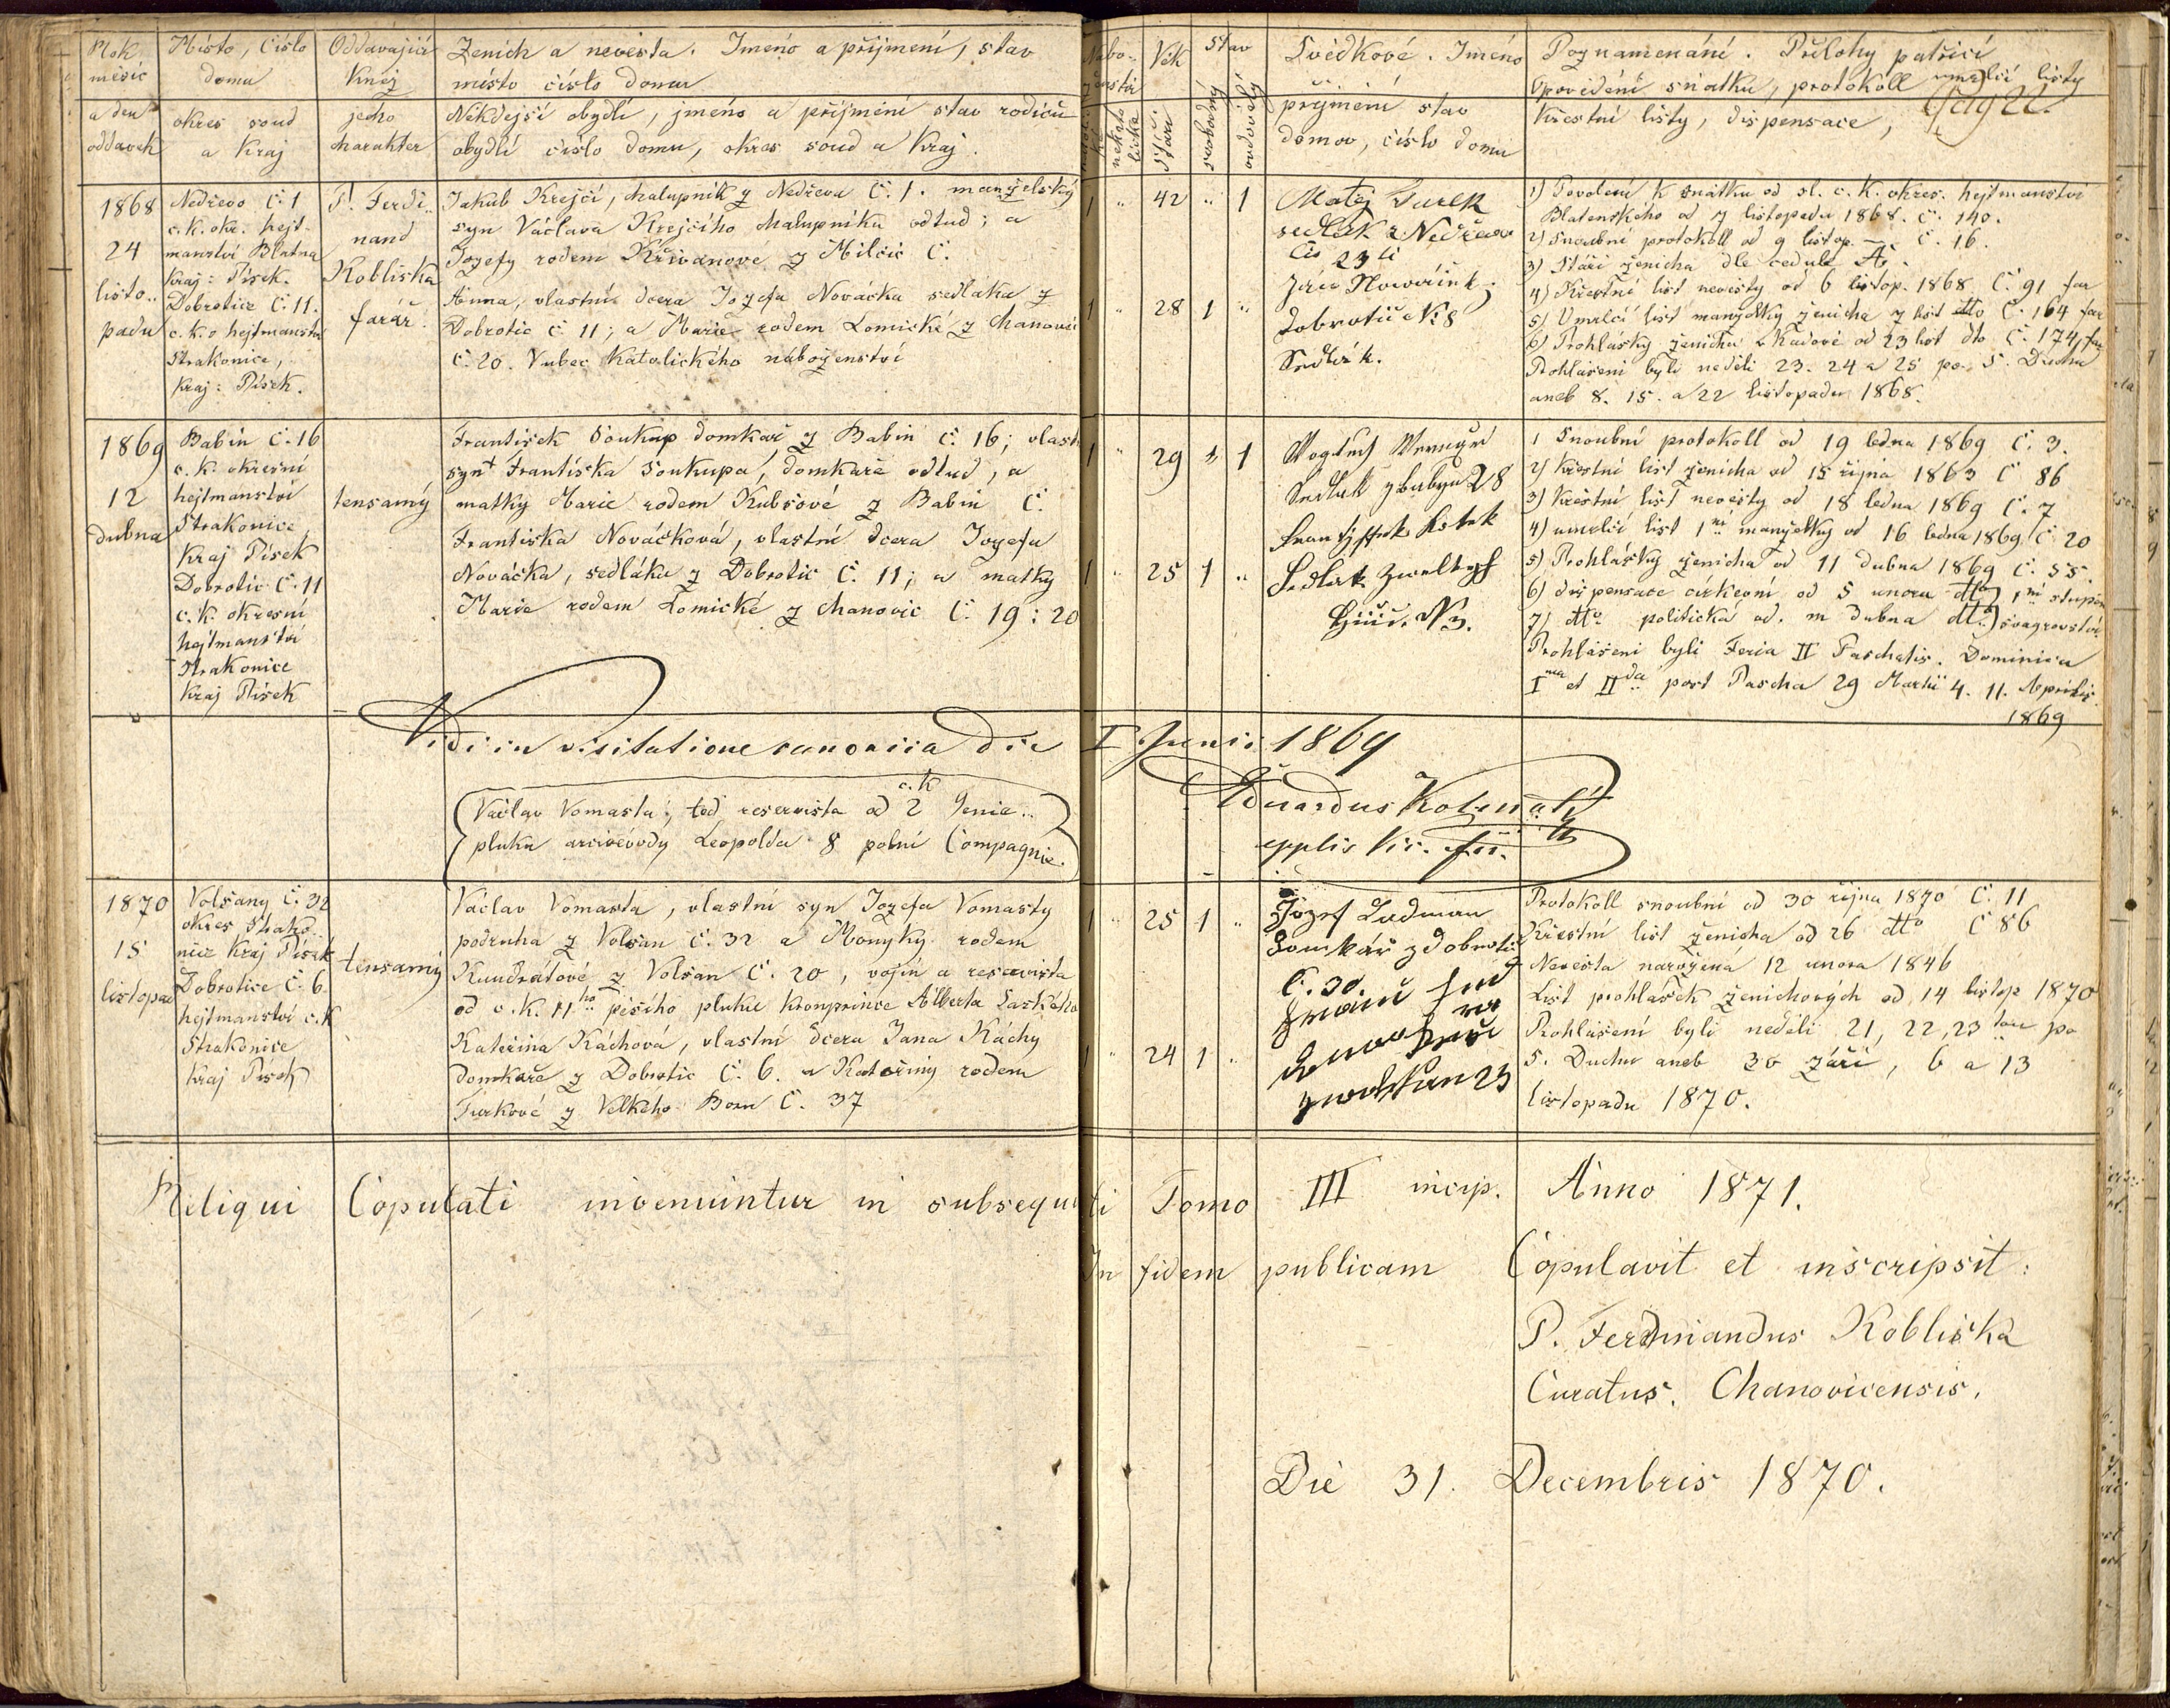 Rok
měsíc
a den
oddavek
Místo, číslo
domu
okres soud
a Kraj
Oddavající
Kněz
jeho
charakter
Ženich a nevěsta. Jméno a příjmení, stav
místo číslo domu
Někdejší obydlí, jméno a příjmení stav rodičů
obydlí číslo domu, okres soud a Kraj.
Věk
Stáří
Stav
svobodný
ovdovělý
Svědkové. Jméno
příjmení stav
domov, číslo domu
Poznamenání. Přílohy patřící
Opovědění sňatku, protokoll umrlčí listy
Křestní listy, dispensace,
1868
24
listo..
padu
Nedřevo č. 1
c. k. okr. hejt-
manství Blatna
Kraj: Písek.
Dobrotice č. 11.
c. k. o hejtmanství
Strakonice,
Kraj: Písek.
P. Ferdi..
nand
Kobliska
farář.
Jakub Krejčí, chalupník z Nedřeva č. 1. manželský
syn Václava Krejčího chalupníka odtud; a
Jozefy rodem Křivanové z Milčic č.
Anna, vlastní dcera Jozefa Nováčka sedláka z
Dobrotic č. 11; a Marie rodem Lomické z Chanovic
č. 20. Vubec Katolického náboženství
1 " 42 " 1
1 " 28 1 "
Matěj Turek
sedlák z Nedřeva
Čis 23
Dobrotic N. 8
Sedlák.
1) Povolení k snátku od sl. c. k. okres. hejtmanství
Blatenského od 7 listopadu 1868. č. 140.
2) Snoubní protokoll od 9 listop. č. 16.
3) Stáří ženicha dle cedule A.
4) Křestní list nevěsty od 6 listop. 1868 č. 91 far
5) Umrlčí list manželky ženicha 7 list dtto č. 164 far
6) Prohlášky ženicha z Kadově od 23 list dto č. 174, far
Prohlášeni byli neděli 23. 24 a 25 po. S. Duchu
aneb 8. 15. a 22 listopadu 1868.
1869
12
dubna
Babin č. 16
c. k. okresní
hejtmanství
Strakonice
Kraj Písek
Dobrotic č. 11
c. k. okresní
hejtmanství
Strakonice
Kraj Písek
tensamý
František Soukup domkář z Babin č. 16; vlast.
syn Františka Soukupa, domkáře odtud, a
matky Marie rodem Kubsové z Babin č.
Františka Nováčková, vlastní dcera Jozefa
Nováčka, sedláka z Dobrotic č. 11; a matky
Marie rodem Lomické z Chanovic č. 19: 20
1 " 29 1 1
1 " 25 1 "
Sedlak z babyn 28
Sedlak
N 3.
1 Snoubní protokoll od 19 ledna 1869 č. 3.
2) Křestní list ženicha od 15 října 1863 č 86
3) Křestní list nevěsty od 18 ledna 1869 č. 7
4) umrlčí list 1ní manželky od 16 ledna 1869 č. 20
5) Prohlášky ženicha od 11 dubna 1869 č. 55.
6) dispensace církevní od 5 unora dtto 1ní stupen
7) dtto politická od. m dubna dtto švagrovství
Prohlášeni byli Feria II Paschatis. Dominica
Ima et IIda post Pascha 29 Martii 4. 11. Aprilis
1869
Vidi in visitatione canonica die I. Junii 1869
Eduardus
epplis Vic.
(Václav Vomasta, teď reservista od c. k 2 Genie..
pluku arcivévody Leopolda 8 polní Compagnie.)
1870
15
listopad
Volšany č. 32
okres Strako..
nice Kraj Písek
Dobrotice č. 6.
hejtmanství c. k
Strakonice
Kraj Písek
tensamý
Václav Vomasta, vlastní syn Jozefa Vomasty
podruha z Volšan č. 32 a Monyky rodem
Kundrátové z Volšan č. 20, vojín a reservista
od c. k. 11ho pěšího pluku kronprince Alberta Saského
Kateřina Káchová, vlastní dcera Jana Káchy
domkáře z Dobrotic č. 6. a Kateřiny rodem
Turkové z Velkého Boru č. 37
1 " 25 1 "
1 " 24 1 "
Jozef Ladman
Domkář z dobrotic
č. 30.
23
Protokoll snoubní od 30 října 1870 č. 11
Křestní list ženicha od 26 dtto č 86
Nevěsta narozená 12 unora 1846
List prohlášek ženichových od 14 listop 1870
Prohlášení byli neděli 21, 22, 23 po
S. Duchu aneb 30 září, 6 a 13
listopadu 1870.
Reliqui Copulati inveniuntur in subsequenti Tomo III incip. Anno 1871.
In fidem publicam Copulavit et inscripsit:
P. Ferdinandus Kobliska
Curatus. Chanovicensis.
Die 31. Decembris 1870.